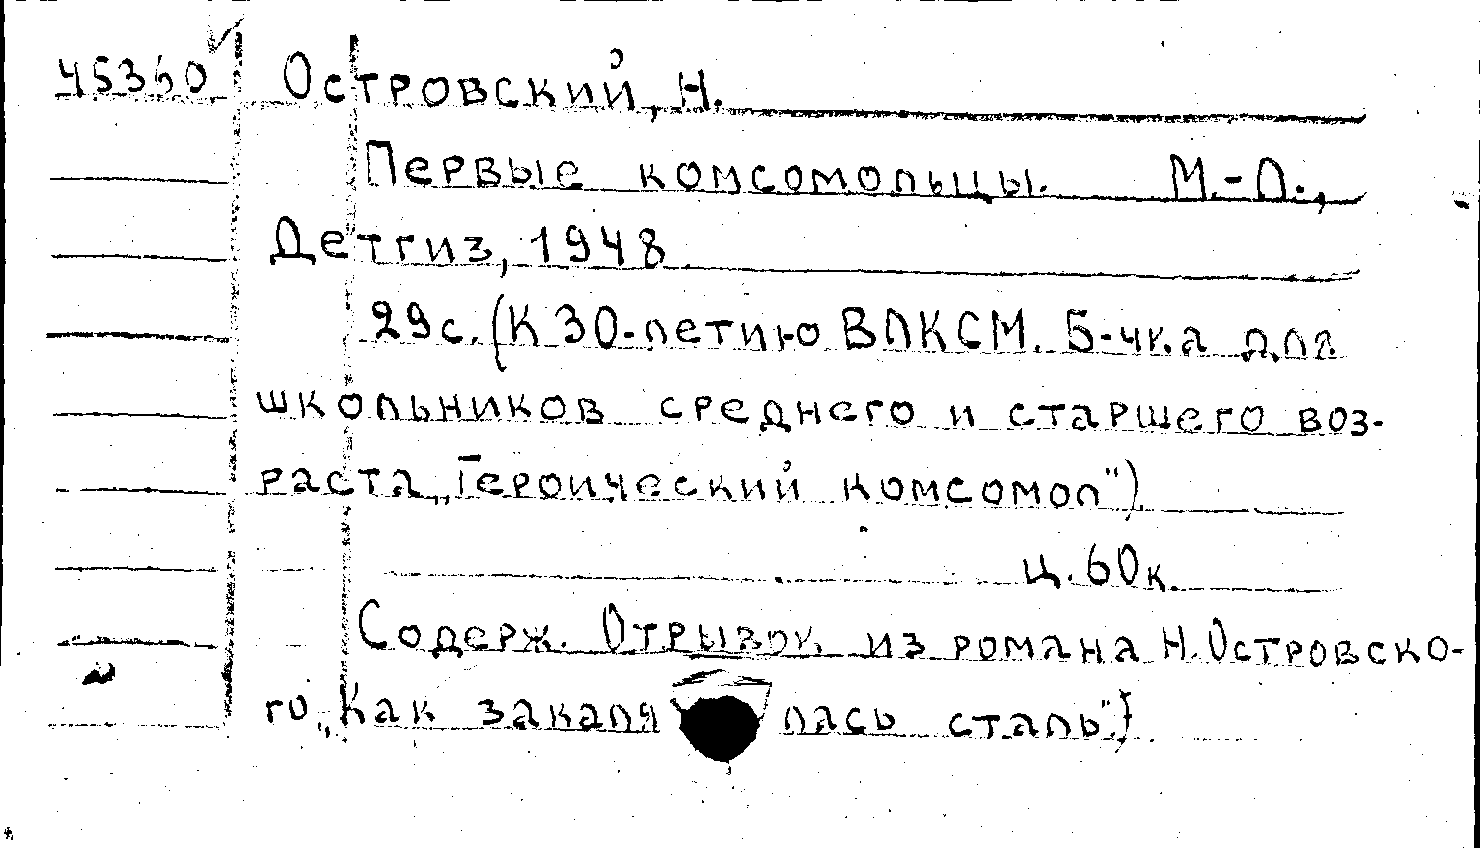 45360 Островский, Н.
Первые комсомольцы. М.-Л.,
Детгиз, 1948
29с. (К 30-летию ВЛКСМ. Б-чка для
школьников среднего и старшего воз-
раста „Героический комсомол")
ц. 60к.
Содерж. Отрывок из романа Н. Островско-
го „Как закаля лась сталь".}